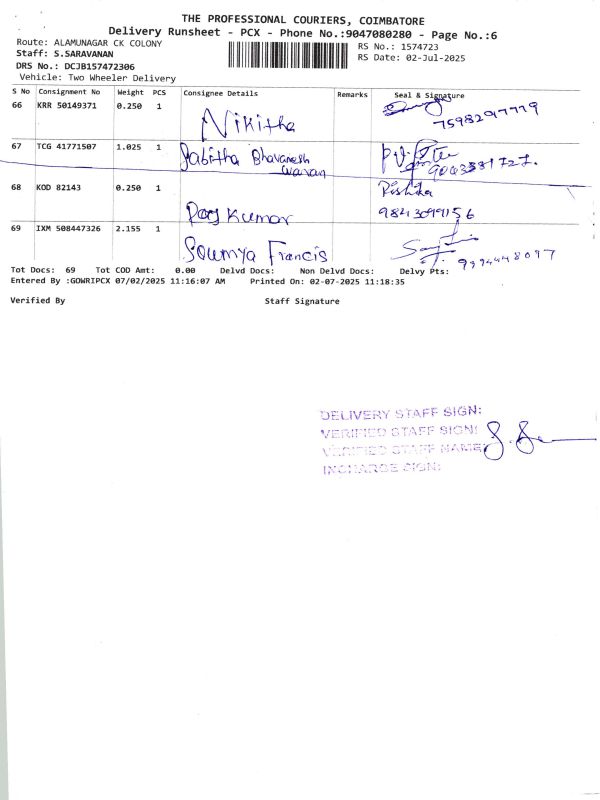 THE PROFESSIONAL COURIERS, COIMBATORE
Delivery Runsheet - PCX - Phone No.:9047080280 - Page No.:6
Route: ALAMUNAGAR CK COLONY
RS No.: 1574723
Staff: S.SARAVANAN
RS Date: 02-Jul-2025
DRS No.: DCJB157472306
Vehicle: Two Wheeler Delivery
S No Consignment No Weight PCS Consignee Details Remarks Seal & Signature
66 KRR 50149371 0.250 1 Nikitha 7598297779
67 TCG 41771507 1.025 1 Sabitha Bhavanesh
waran
68 KOD 82143 0.250 1 Raj Kumar Rishika
9843099156
69 IXM 508447326 2.155 1 Soumya Francis 9994448097
Tot Docs: 69 Tot COD Amt: 0.00 Delvd Docs: Non Delvd Docs: Delvy Pts:
Entered By :GOWRIPCX 07/02/2025 11:16:07 AM Printed On: 02-07-2025 11:18:35
Verified By Staff Signature
DELIVERY STAFF SIGN:
VERIFIED STAFF SIGN:
VERIFIED STAFF NAME:
INCHARGE SIGN: